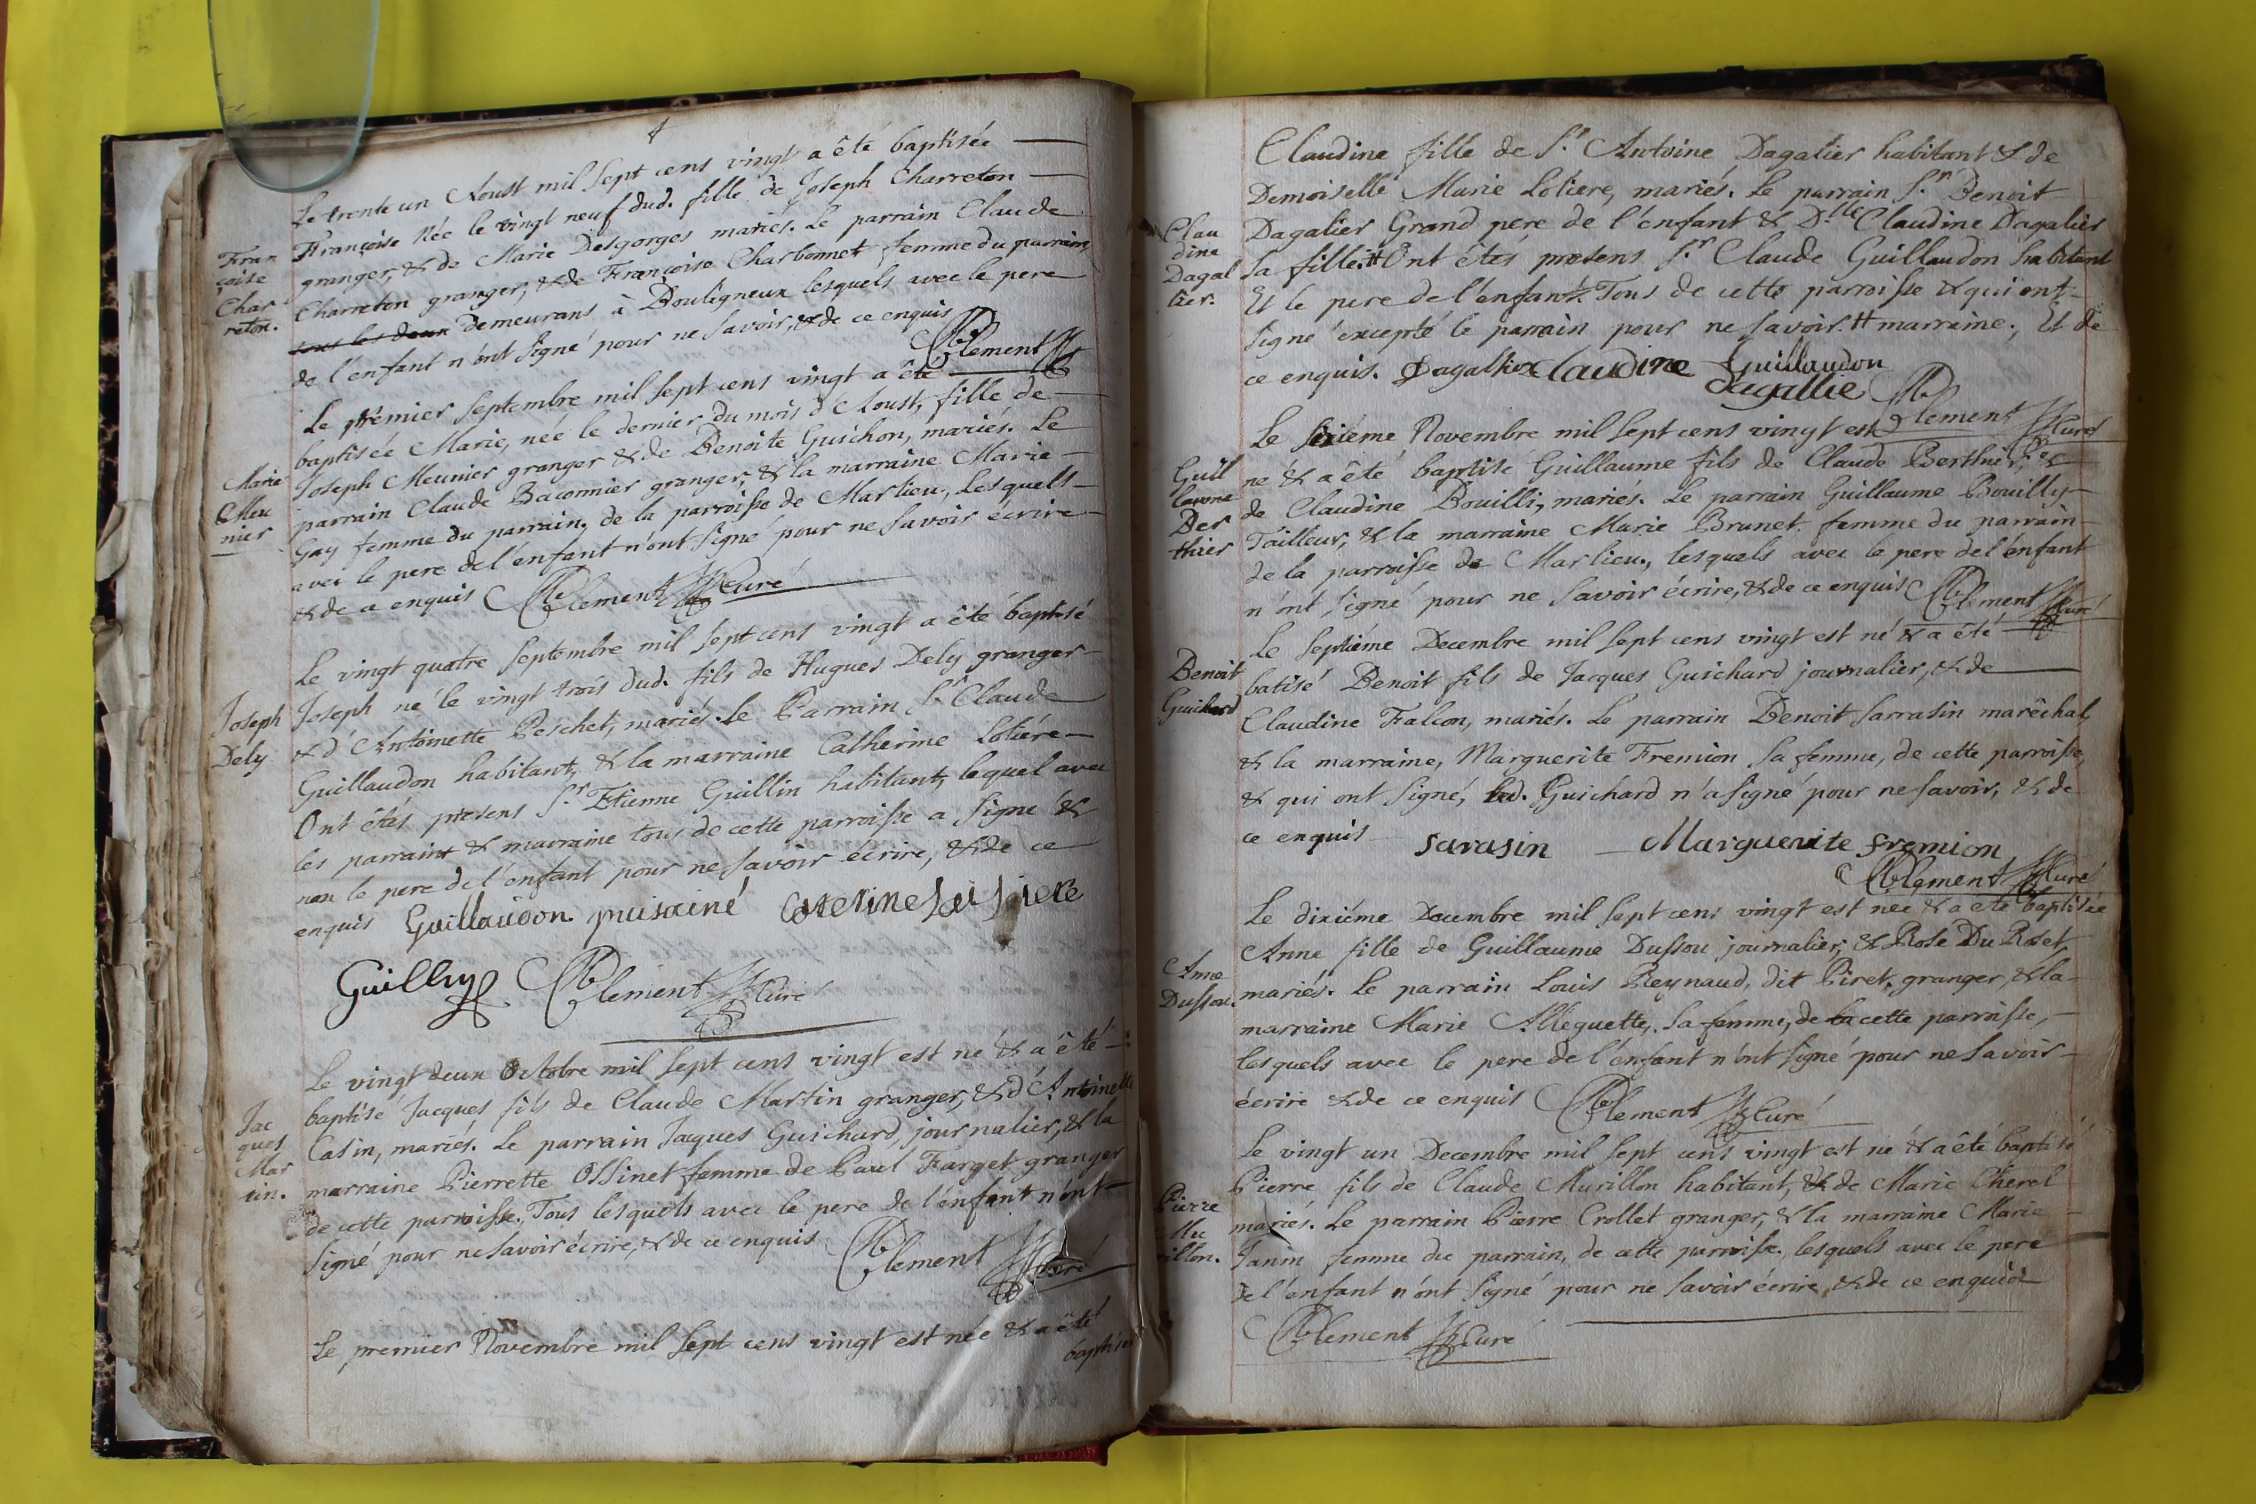 Le trente un Aoust mil sept cens vingt a êté baptisée
Françoise Née le vingt neuf dud. fille de Joseph Charreton
granger, & de Marie Desgorges mariés. Le parrain Claude
Charreton granger, & de Françoise Charbonnet femme du parrain,
tous les deux demeurans à Bouligneux lesquels avec le pere
de l'enfant n'ont signé pour ne savoir, & de ce enquis
Clement
Fran
çoise
Char
reton.
Le prémier Septembre mil sept cens vingt a êté
baptisée Marie, née le dernier du mois d'Aoust, fille de
Joseph Meunier granger & de Benoite Guichon, mariés. Le
parrain Claude Baconnier granger, & la marraine Marie
Gay femme du parrain, de la parroisse de Marlieu, Lesquels
avec le pere de l'enfant n'ont signé pour ne savoir écrire
& de ce enquis Clement Curé
Marie
Meu
nier
Le vingt quatre Septembre mil sept cens vingt a êté baptisé
Joseph né le vingt trois dud. fils de Hugues Dely granger
& d'Antoinette Peschet, mariés. Le Parrain Sr. Claude
Guillaudon habitant, & la marraine Catherine Lotiére
Ont êtés presens Sr. Etienne Guillin habitant, lequel avec
les parrains & marraine tous de cette parroisse a signé &
non le pere de l'enfant pour ne savoir écrire, & de ce
enquis Guillaudon puisainé
Clement Curé
Joseph
Dely
Le vingt deux Octobre mil sept cens vingt est né & a êté
baptisé Jacques fils de Claude Martin granger, & d'Antoinette
Casin, mariés. Le parrain Jacques Guichard, journalier, & la
marraine Pierrette Ossinet femme de Paul Farget granger
de cette parroisse. Tous lesquels avec le pere de l'enfant n'ont
signé pour ne savoir écrire, & de ce enquis Clement Curé
Jac
ques
Mar
tin.
Le premier Novembre mil sept cens vingt est née & a êté
baptisée
Claudine fille de Sr. Antoine Dagalier habitant & de
Demoiselle Marie Lotiere, mariés. Le parrain Sr. Benoit
Dagalier Grand pere de l'enfant & Dlle Claudine Dagalier
sa fille.# Ont êtés presens Sr. Claude Guillaudon habitant
Et le pere de l'enfant. Tous de cette parroisse & qui ont
signé excepté le parrain pour ne savoir. # marraine. Et de
ce enquis. Dagallier Claudine Guillaudon
dagallie
Clement Curé
Clau
dine
Dagal
lier.
Le sixiéme Novembre mil sept cens vingt est
né & a êté baptisé Guillaume fils de Claude Berthier, &
de Claudine Bouilli, mariés. Le parrain Guillaume Bouilly
Tailleur, & la marraine Marie Brunet femme du parrain
de la parroisse de Marlieu, lesquels avec le pere de l'énfant
n'ont signé pour ne savoir écrire, & de ce enquis Clement Curé
Guil
laume
Ber
thier
Le Septiéme Decembre mil sept cens vingt est né & a êté
batisé Benoit fils de Jacques Guichard journalier, & de
Claudine Falcon, mariés. Le parrain Benoit Sarrasin marêchal,
& la marraine, Marguerite Fremion sa femme, de cette parroisse,
& qui ont signé, led. Guichard n'a signé pour ne savoir, & de
ce enquis sarasin Marguerite fremion
Clement Curé
Benoit
Guichard
Le dixiéme Decembre mil sept cens vingt est née & a êté baptisée
Anne fille de Guillaume Dussou journalier, & Rose Du Roset,
mariés. Le parrain Louis Reynaud, dit Piret, granger, & la
marraine Marie Alleguette, sa femme, de cette parroisse,
lesquels avec le pere de l'énfant n'ont signé pour ne savoir
écrire & de ce enquis Clement Curé
Anne
Dussou.
Le vingt un Decembre mil sept cens vingt est né & a êté baptisé
Pierre fils de Claude Murillon habitant, & de Marie Cherel
mariés. Le parrain Pierre Crollet granger, & la marraine Marie
Janin femme du parrain, de cette parroisse. lesquels avec le pere
de l'énfant n'ont signé pour ne savoir écrire, & de ce enquis
Clement Curé
Pierre
Mu
rillon.